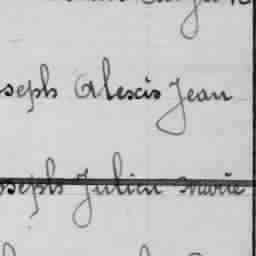 seph Alexis Jean
oseph Julien Marie